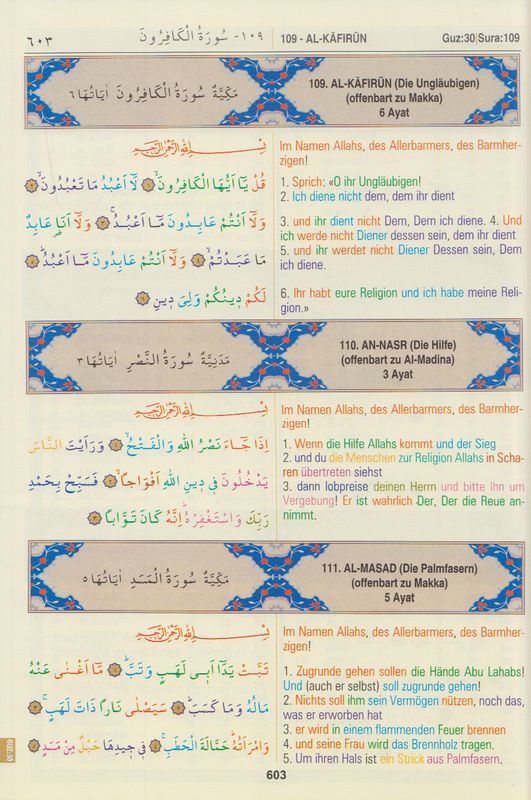 ٦٠٣
١٠٩- سُورَةُ الْكَافِرُونَ
109 - AL-KĀFIRŪN
Guz:30|Sura:109
مَكِّيَّةٌ سُورَةُ الْكَافِرُونَ اٰيَاتُهَا ٦
109. AL-KĀFIRŪN (Die Ungläubigen)
(offenbart zu Makka)
6 Ayat
بِسْمِ اللّٰهِ الرَّحْمٰنِ الرَّحِيمِ
قُلْ يَٓا اَيُّهَا الْكَافِرُونَۙ ﴿١﴾ لَٓا اَعْبُدُ مَا تَعْبُدُونَۙ ﴿٢﴾
وَلَٓا اَنْتُمْ عَابِدُونَ مَٓا اَعْبُدُۚ ﴿٣﴾ وَلَٓا اَنَا۬ عَابِدٌ
مَا عَبَدْتُمْۙ ﴿٤﴾ وَلَٓا اَنْتُمْ عَابِدُونَ مَٓا اَعْبُدُۜ ﴿٥﴾
لَكُمْ دِينُكُمْ وَلِيَ دِينِ ﴿٦﴾
Im Namen Allahs, des Allerbarmers, des Barmher-
zigen!
1. Sprich: «O ihr Ungläubigen!
2. Ich diene nicht dem, dem ihr dient
3. und ihr dient nicht Dem, Dem ich diene. 4. Und
ich werde nicht Diener dessen sein, dem ihr dient
5. und ihr werdet nicht Diener Dessen sein, Dem
ich diene.
6. Ihr habt eure Religion und ich habe meine Reli-
gion.»
مَدَنِيَّةٌ سُورَةُ النَّصْرِ اٰيَاتُهَا ٣
110. AN-NASR (Die Hilfe)
(offenbart zu Al-Madina)
3 Ayat
بِسْمِ اللّٰهِ الرَّحْمٰنِ الرَّحِيمِ
اِذَا جَٓاءَ نَصْرُ اللّٰهِ وَالْفَتْحُۙ ﴿١﴾ وَرَاَيْتَ النَّاسَ
يَدْخُلُونَ فِي دِينِ اللّٰهِ اَفْوَاجًاۙ ﴿٢﴾ فَسَبِّحْ بِحَمْدِ
رَبِّكَ وَاسْتَغْفِرْهُۜ اِنَّهُ كَانَ تَوَّابًا ﴿٣﴾
Im Namen Allahs, des Allerbarmers, des Barmher-
zigen!
1. Wenn die Hilfe Allahs kommt und der Sieg
2. und du die Menschen zur Religion Allahs in Scha-
ren übertreten siehst
3. dann lobpreise deinen Herrn und bitte Ihn um
Vergebung! Er ist wahrlich Der, Der die Reue an-
nimmt.
مَكِّيَّةٌ سُورَةُ الْمَسَدِ اٰيَاتُهَا ٥
111. AL-MASAD (Die Palmfasern)
(offenbart zu Makka)
5 Ayat
بِسْمِ اللّٰهِ الرَّحْمٰنِ الرَّحِيمِ
تَبَّتْ يَدَٓا اَبِي لَهَبٍ وَتَبَّۜ ﴿١﴾ مَٓا اَغْنٰى عَنْهُ
مَالُهُ وَمَا كَسَبَۜ ﴿٢﴾ سَيَصْلٰى نَارًا ذَاتَ لَهَبٍۚ ﴿٣﴾
وَامْرَاَتُهُۜ حَمَّالَةَ الْحَطَبِۚ ﴿٤﴾ فِي جِيدِهَا حَبْلٌ مِنْ مَسَدٍ ﴿٥﴾
Im Namen Allahs, des Allerbarmers, des Barmher-
zigen!
1. Zugrunde gehen sollen die Hände Abu Lahabs!
Und (auch er selbst) soll zugrunde gehen!
2. Nichts soll ihm sein Vermögen nützen, noch das,
was er erworben hat
3. er wird in einem flammenden Feuer brennen
4. und seine Frau wird das Brennholz tragen.
5. Um ihren Hals ist ein Strick aus Palmfasern.
GUZ:30
603